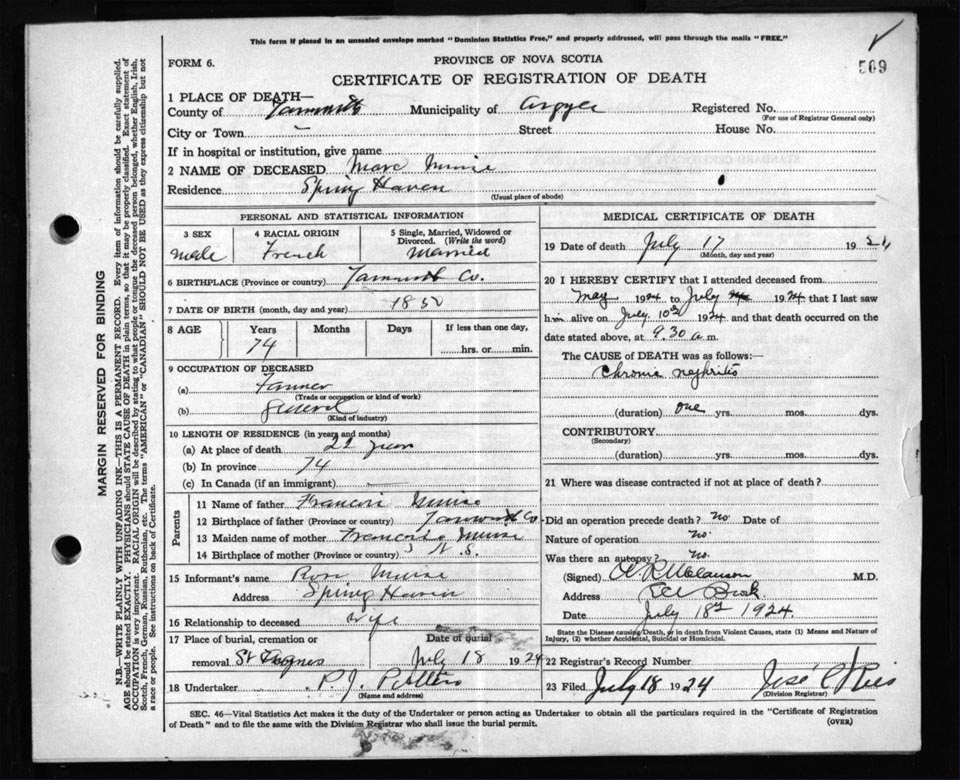 This form if placed in an unsealed envelope marked "Dominion Statistics Free," and properly addressed, will pass through the mails "FREE."
509
FORM 6.
PROVINCE OF NOVA SCOTIA
CERTIFICATE OF REGISTRATION OF DEATH
1 PLACE OF DEATH—
County of Yarmouth Municipality of Argyle Registered No.
(For use of Registrar General only)
City or Town — Street House No.
If in hospital or institution, give name
2 NAME OF DECEASED Marc Muise
Residence Spring Haven
(Usual place of abode)
PERSONAL AND STATISTICAL INFORMATION
3 SEX
male
4 RACIAL ORIGIN
French
5 Single, Married, Widowed or Divorced. (Write the word)
Married
6 BIRTHPLACE (Province or country) Yarmouth Co.
7 DATE OF BIRTH (month, day and year) 1850
8 AGE Years Months Days If less than one day,
74 hrs. or min.
9 OCCUPATION OF DECEASED
(a) Farmer
(Trade or occupation or kind of work)
(b) general
(Kind of industry)
10 LENGTH OF RESIDENCE (in years and months)
(a) At place of death years
(b) In province 74
(c) In Canada (if an immigrant)
Parents
11 Name of father Francois Muise
12 Birthplace of father (Province or country) Yarmouth Co.
13 Maiden name of mother Muise
14 Birthplace of mother (Province or country) N.S.
15 Informant's name Muise
Address Spring Haven
16 Relationship to deceased wife
17 Place of burial, cremation or Date of burial
removal St Agnes July 18 1924
18 Undertaker P. J.
(Name and address)
MEDICAL CERTIFICATE OF DEATH
19 Date of death July 17 1924
(Month, day and year)
20 I HEREBY CERTIFY that I attended deceased from
May 1924 to July 1924 that I last saw
him alive on July 10th 1924 and that death occurred on
date stated above, at 9.30 a.m.
The CAUSE of DEATH was as follows:
Chronic nephritis
(duration) one yrs. mos. dys.
CONTRIBUTORY
(Secondary)
(duration) yrs. mos. dys.
21 Where was disease contracted if not at place of death?
Did an operation precede death? no Date of
Nature of operation no.
Was there an autopsy? no.
(Signed) M.D.
Address Eel Brook
Date July 18th 1924
State the Disease causing Death, or in death from Violent Causes, state (1) Means and Nature of Injury, (2) whether Accidental, Suicidal or Homicidal.
22 Registrar's Record Number
23 Filed July 18 1924
(Division Registrar)
SEC. 46—Vital Statistics Act makes it the duty of the Undertaker or person acting as Undertaker to obtain all the particulars required in the "Certificate of Registration
of Death" and to file the same with the Division Registrar who shall issue the burial permit.
(OVER)
MARGIN RESERVED FOR BINDING
N.B.—WRITE PLAINLY WITH UNFADING INK—THIS IS A PERMANENT RECORD. Every item of information should be carefully supplied.
AGE should be stated EXACTLY. PHYSICIANS should STATE CAUSE OF DEATH in plain terms, so that it may be properly classified. Exact statement of
OCCUPATION is very important. RACIAL ORIGIN will be described by stating to what people or tongue the deceased person belonged, whether English, Irish,
Scotch, French, German, Russian, Ruthenian, etc. The terms "AMERICAN" or "CANADIAN" SHOULD NOT BE USED as they express citizenship but not
a race or people. See instructions on back of Certificate.